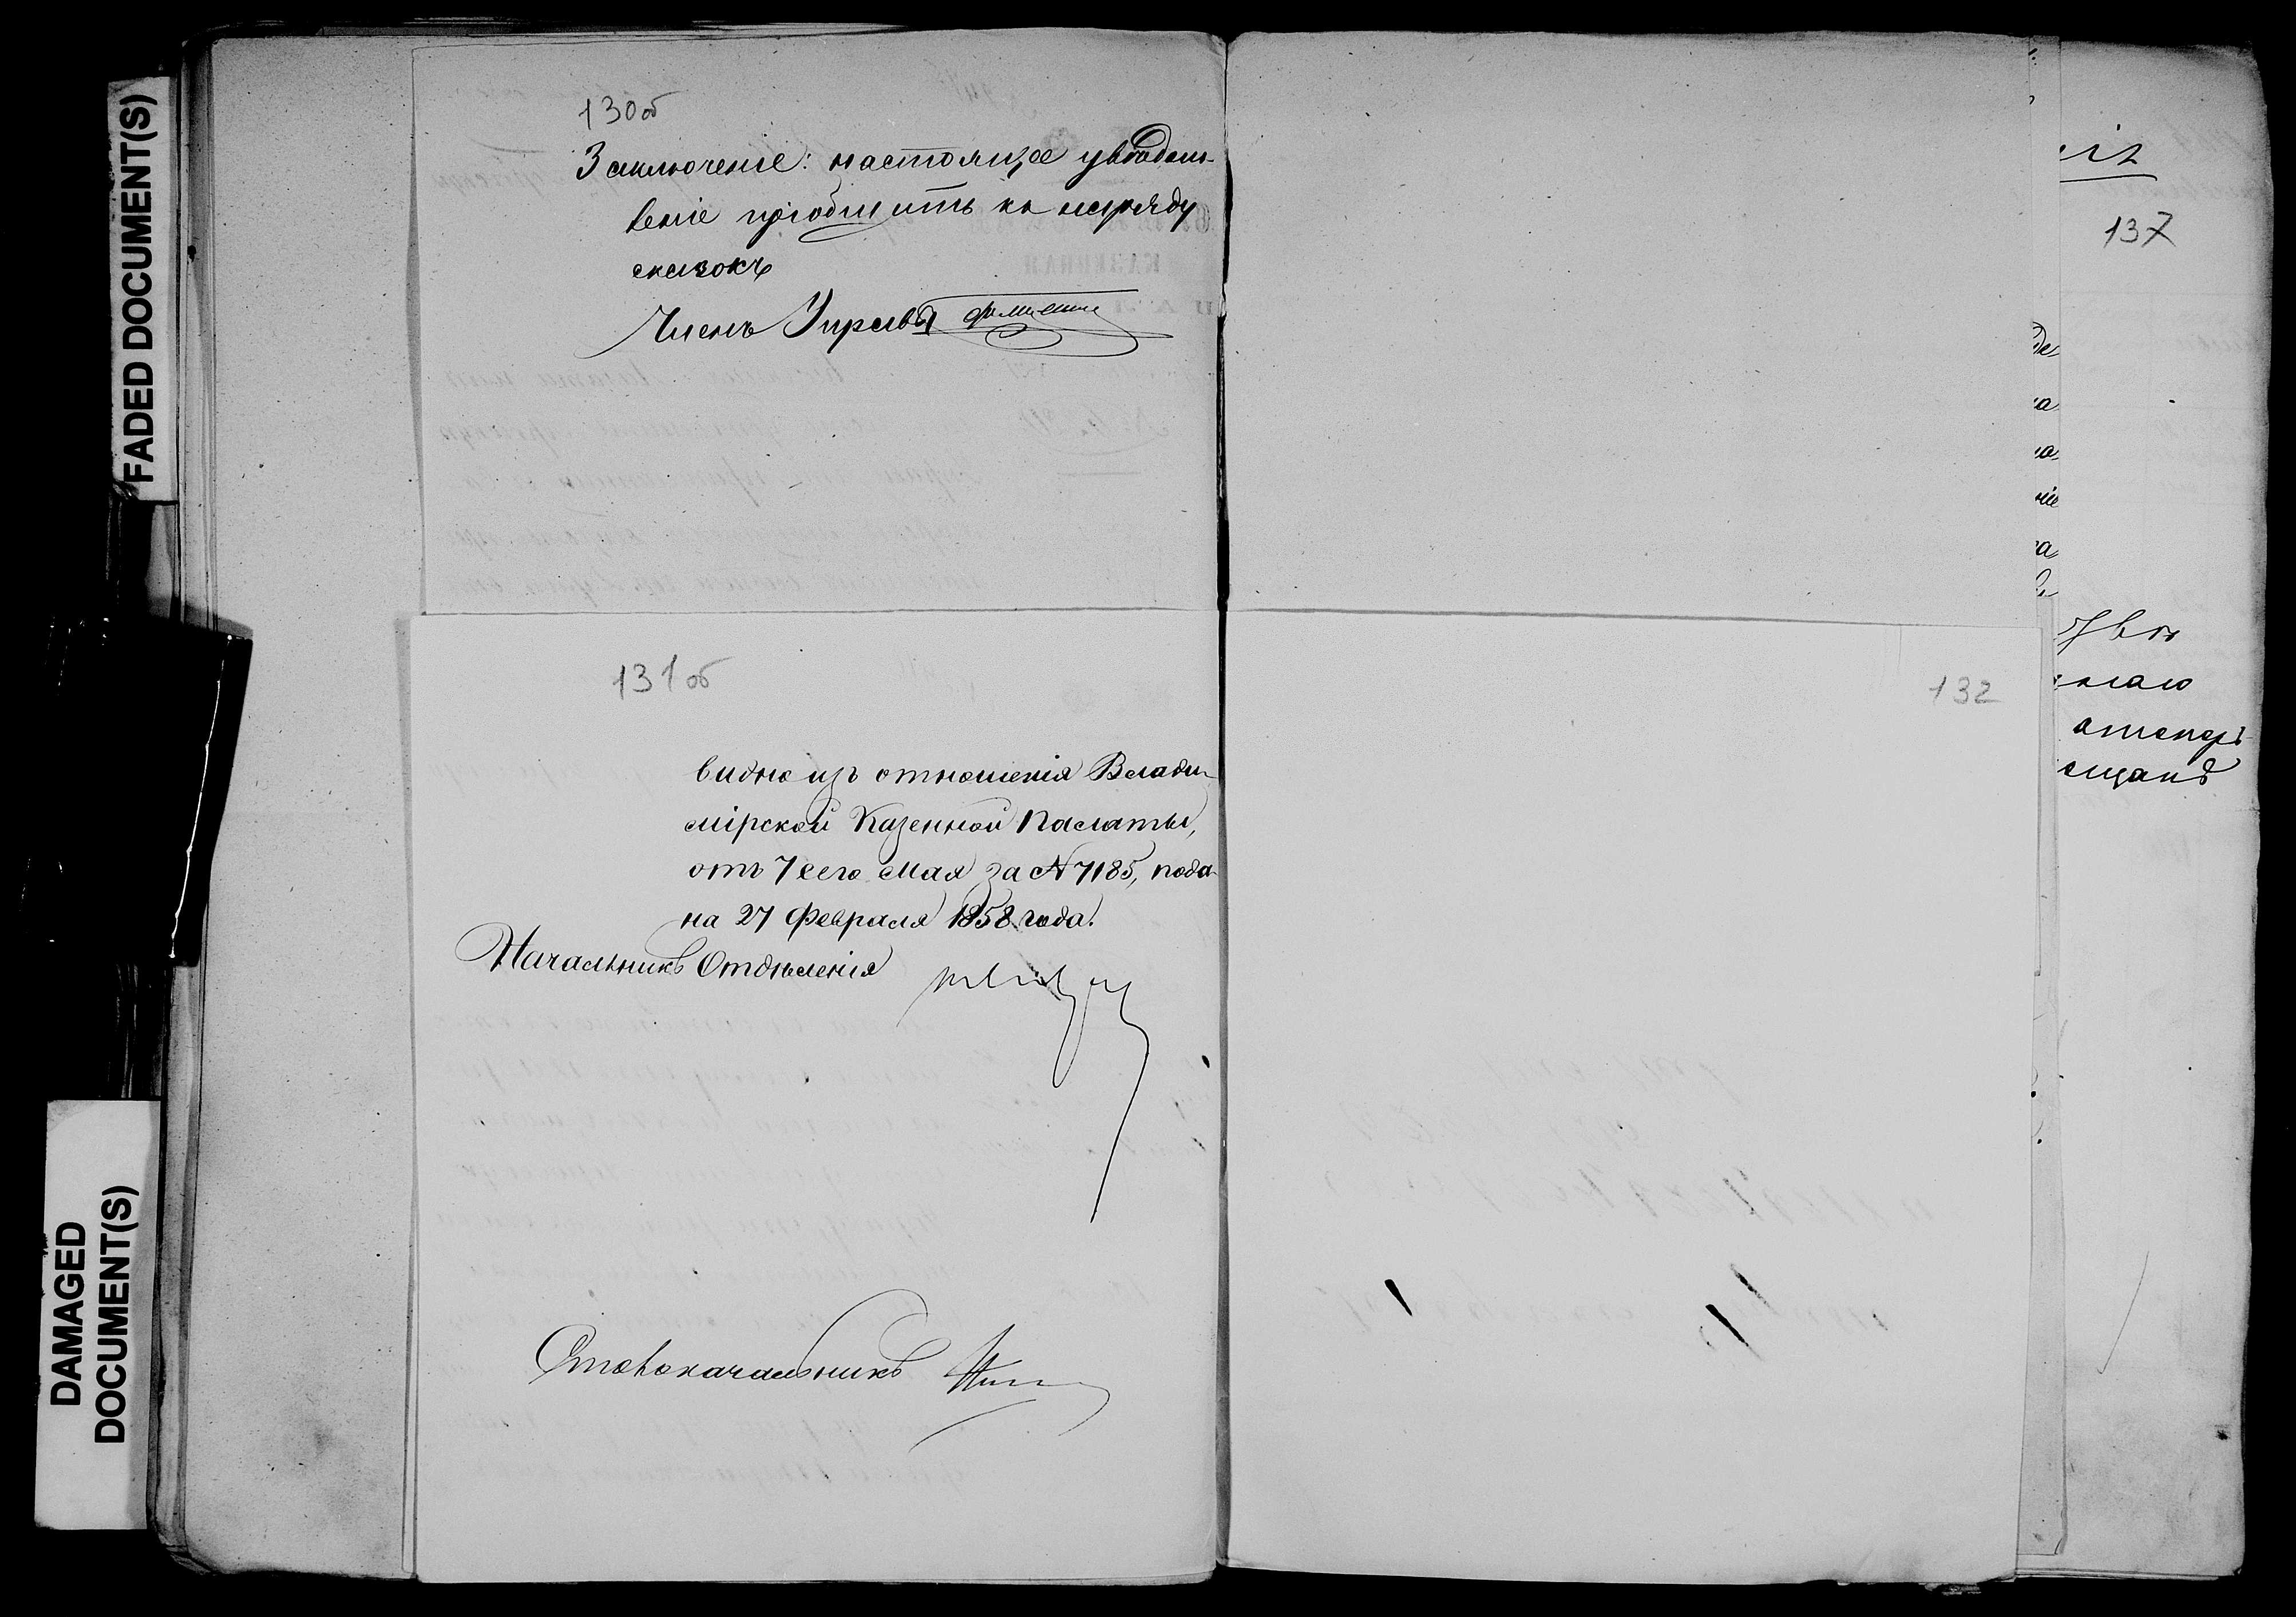 FADED DOCUMENT(S)
DAMAGED
DOCUMENT(S)
130об
Заключеніе: настоящее увѣдом-
леніе пріобщить къ наряду
сказокъ
Членъ Управы
131об
видно изъ отношенія Влади-
мірской Казенной Палаты,
отъ 7 сего Мая за № 7185, пода-
на 27 Февраля 1858 года.
Начальникъ Отдѣленія
Столоначальникъ
132
137